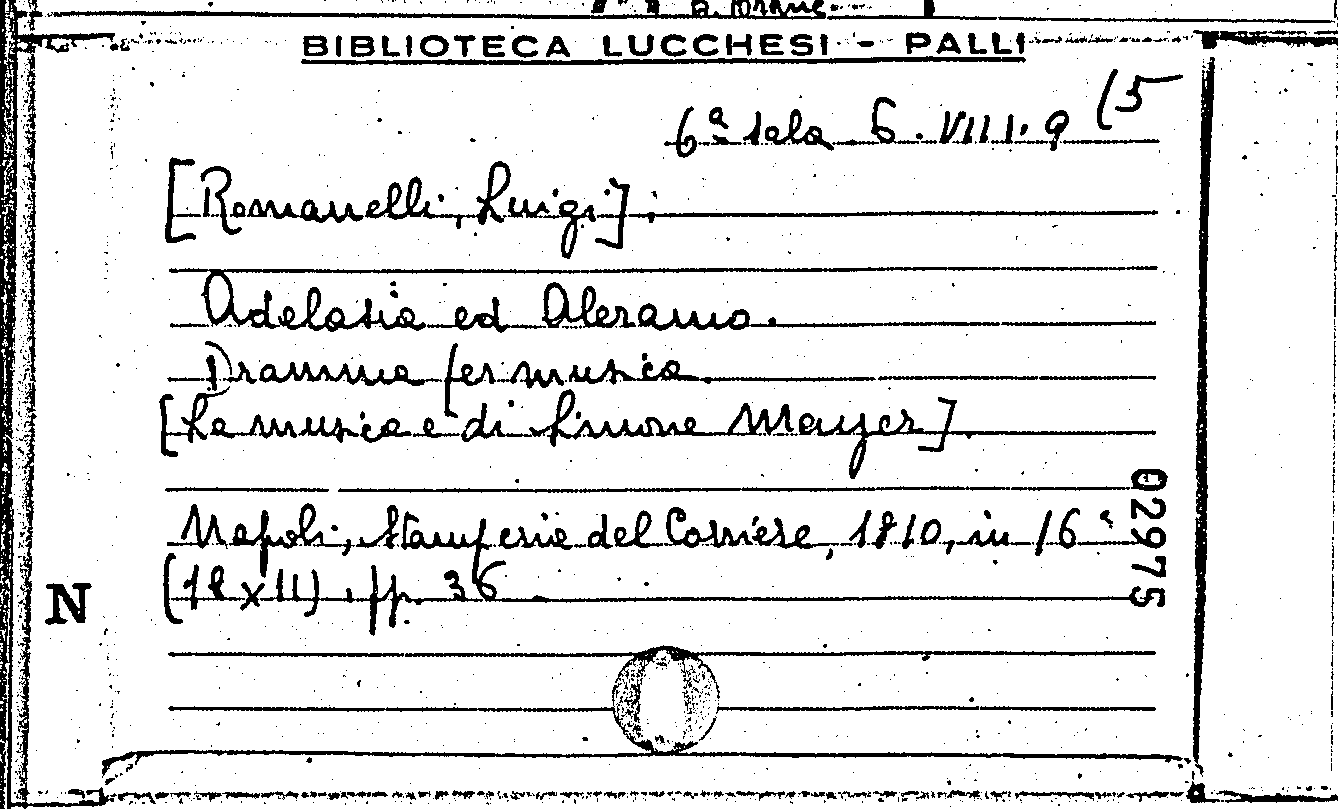 BIBLIOTECA LUCCHESI - PALLI
6ª sala 6. VIII. 9 (5
[Romanelli, Luigi].
Adelasia ed Aleramo.
Dramma per musica.
[La musica è di Simone Mayer].
Napoli, Stamperia del Corriere, 1810, in 16°
(18 x 11), pp. 36
02975
N